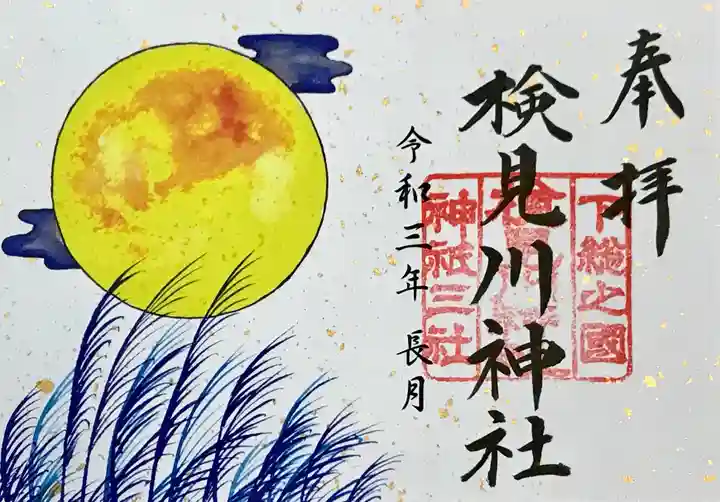 奉拝
検見川神社
令和三年 長月
下総之國
神祇三社